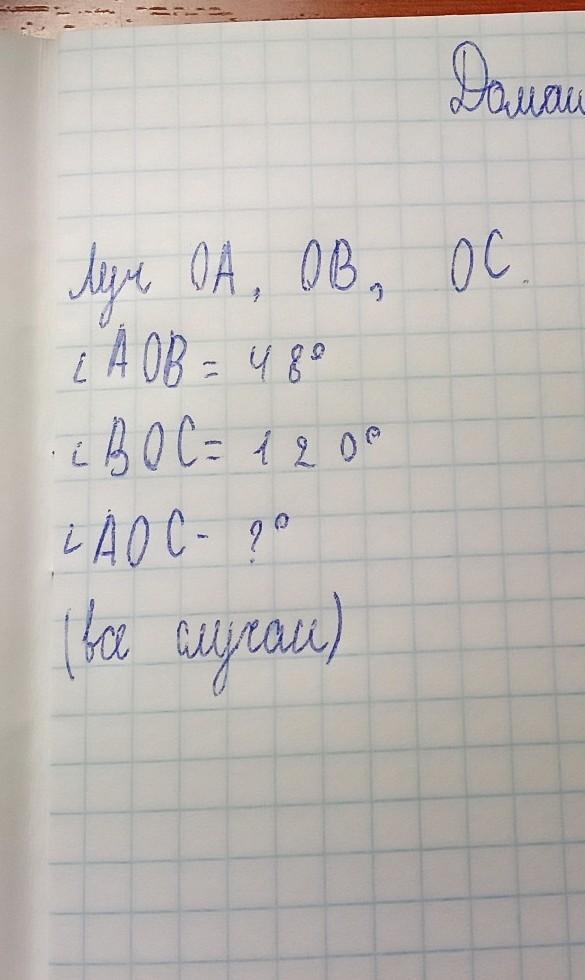 Домаш
Луч OA, OB, OC.
∠AOB = 48°
∠BOC = 120°
∠AOC - ?°
(все случаи)